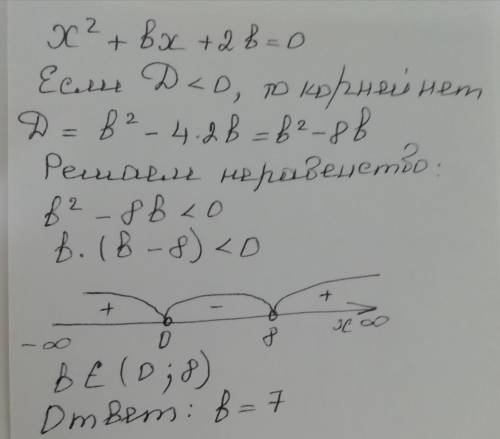 x² + bx + 2b = 0
Если D < 0, то корней нет
D = b² - 4·2b = b² - 8b
Решаем неравенство:
b² - 8b < 0
b·(b - 8) < 0
+ - +
-∞ 0 8 x ∞
b ∈ (0; 8)
Ответ: b = 7